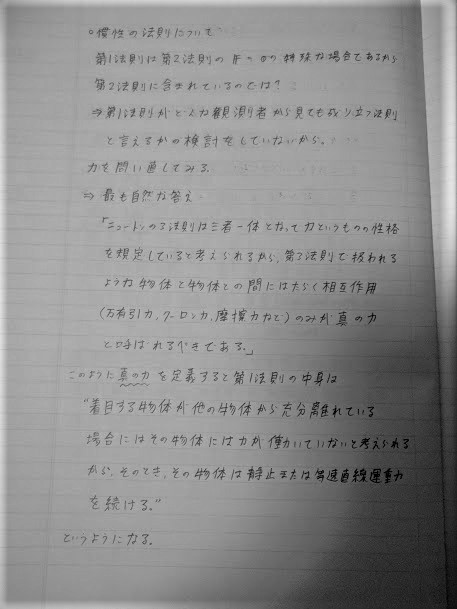 ○慣性の法則について
第1法則は第2法則のF=0の特殊な場合であるから
第2法則に含まれているのでは?
⇒第1法則がどんな観測者から見ても成り立つ法則
と言えるかの検討をしていないから。
力を問い直してみる。
⇒ 最も自然な答え
「ニュートンの3法則は三者一体となって力というものの性格
を規定していると考えられるから、第3法則で扱われる
ような物体と物体との間にはたらく相互作用
(万有引力、クーロン力、摩擦力など)のみが真の力
と呼ばれるべきである。」
このように真の力を定義すると第1法則の中身は
"着目する物体が他の物体から充分離れている
場合にはその物体には力が働いていないと考えられる
から、そのとき、その物体は静止または等速直線運動
を続ける。"
というようになる。